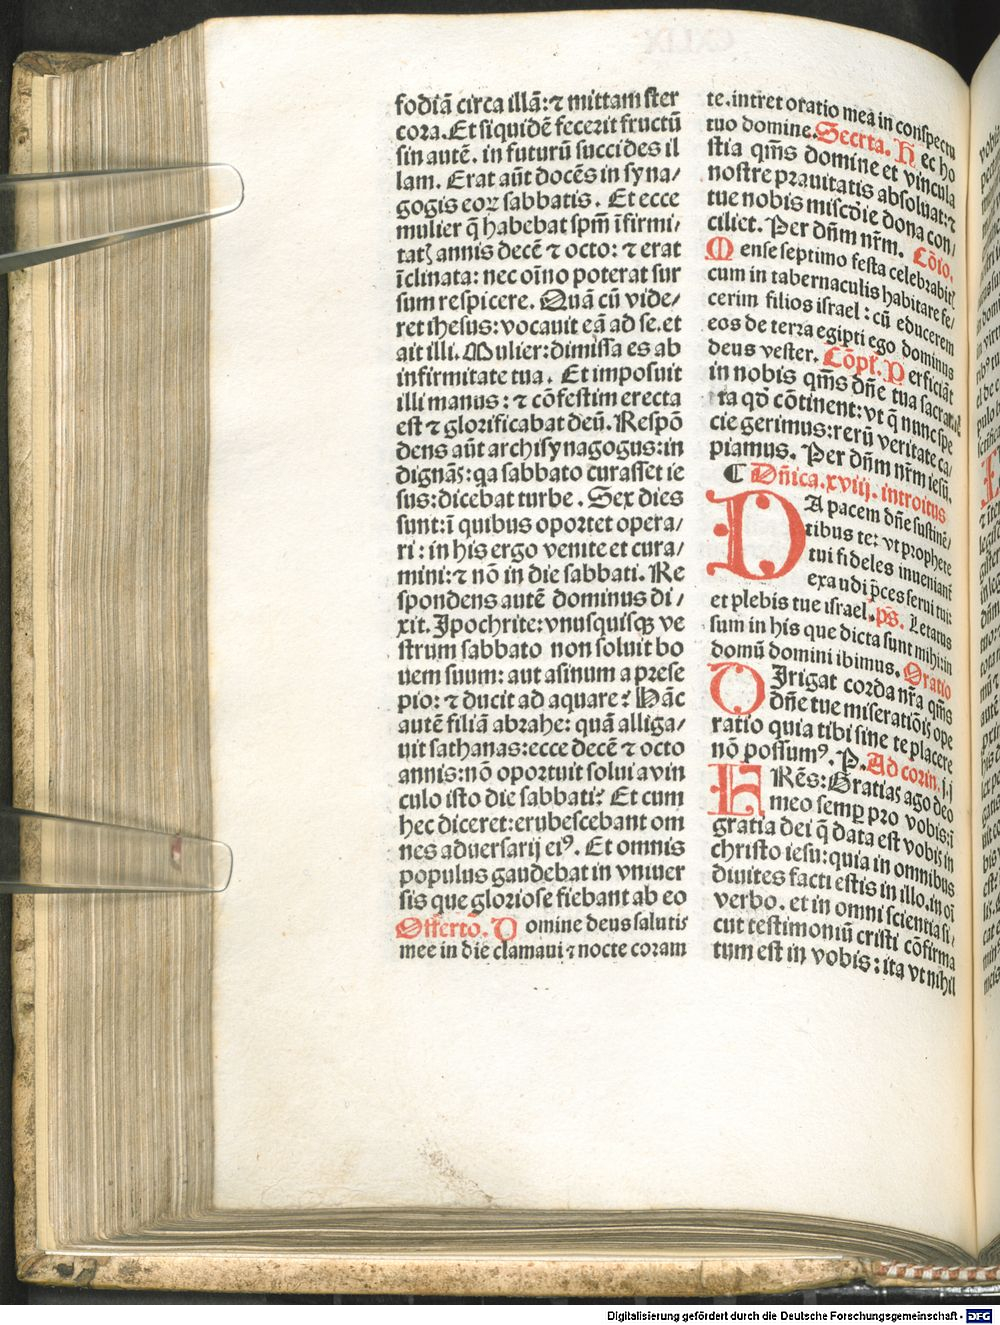 fodiā circa illā: ⁊ mittam ster
cora. Et siquidē fecerit fructū
sin autē. in futurū succides il
lam. Erat aūt docēs in syna/
gogis eoꝝ sabbatis. Et ecce
mulier q̄ habebat spm̄ īfirmi/
tatꝫ annis decē ⁊ octo: ⁊ erat
īclinata: nec oīno poterat sur
sum respicere. Quā cū vide/
ret ihesus: vocauit eā ad se. et
ait illi. Mulier: dimissa es ab
infirmitate tua. Et imposuit
illi manus: ⁊ cōfestim erecta
est ⁊ glorificabat deū. Respō
dens aūt archisynagogus: in
dignās: qa sabbato curasset ie
sus: dicebat turbe. Sex dies
sunt: ī quibus oportet opera/
ri: in his ergo venite et cura/
mini: ⁊ nō in die sabbati. Re
spondens autē dominus di/
xit. Ipochrite: vnusquisqꝫ ve
strum sabbato non soluit bo
uem suum: aut asinum a prese
pio: ⁊ ducit ad aquare? Hāc
autē filiā abrahe: quā alliga/
uit sathanas: ecce decē ⁊ octo
annis: nō oportuit solui a vin
culo isto die sabbati? Et cum
hec diceret: erubescebant om
nes aduersarij eiꝰ. Et omnis
populus gaudebat in vniuer
sis que gloriose fiebant ab eo
Offertō. Domine deus salutis
mee in die clamaui ⁊ nocte coram
te. intret oratio mea in conspectu
tuo domine. Secrta. Hec ho
stia qm̄s domine et vincula
nostre prauitatis absoluat: ⁊
tue nobis miscd̄ie dona con/
ciliet. Per dn̄m nr̄m. Cōio.
Mense septimo festa celebrabitꝭ
cum in tabernaculis habitare fe/
cerim filios israel: cū educerem
eos de terra egipti ego dominus
deus vester. Cōpl̄. Perficiāt
in nobis qm̄s dn̄e tua sacram̄
ta qd̄ cōtinent: vt q̄ nunc spe
cie gerimus: rerū veritate ca/
piamus. Per dn̄m nr̄m iesū.
¶ Dn̄ica. xviij. introitus
DA pacem dn̄e sustinē/
tibus te: vt prophete
tui fideles inueniant̄
exaudi p̄ces serui tui:
et plebis tue israel. ps̄. Letatus
sum in his que dicta sunt mihi: in
domū domini ibimus. Oratio
DIrigat corda nr̄a qm̄s
dn̄e tue miseratiōis ope
ratio quia tibi sine te placere
nō possumꝰ. P. Ad corin. j. j
FRēs: Gratias ago deo
meo semꝑ pro vobis: ī
gratia dei q̄ data est vobis in
christo iesu: quia in omnibus
diuites facti estis in illo. in oī
verbo. et in omni scientia si/
cut testimoniū cristi cōfirma
tum est in vobis: ita vt nihil
Digitalisierung gefördert durch die Deutsche Forschungsgemeinschaft - DFG